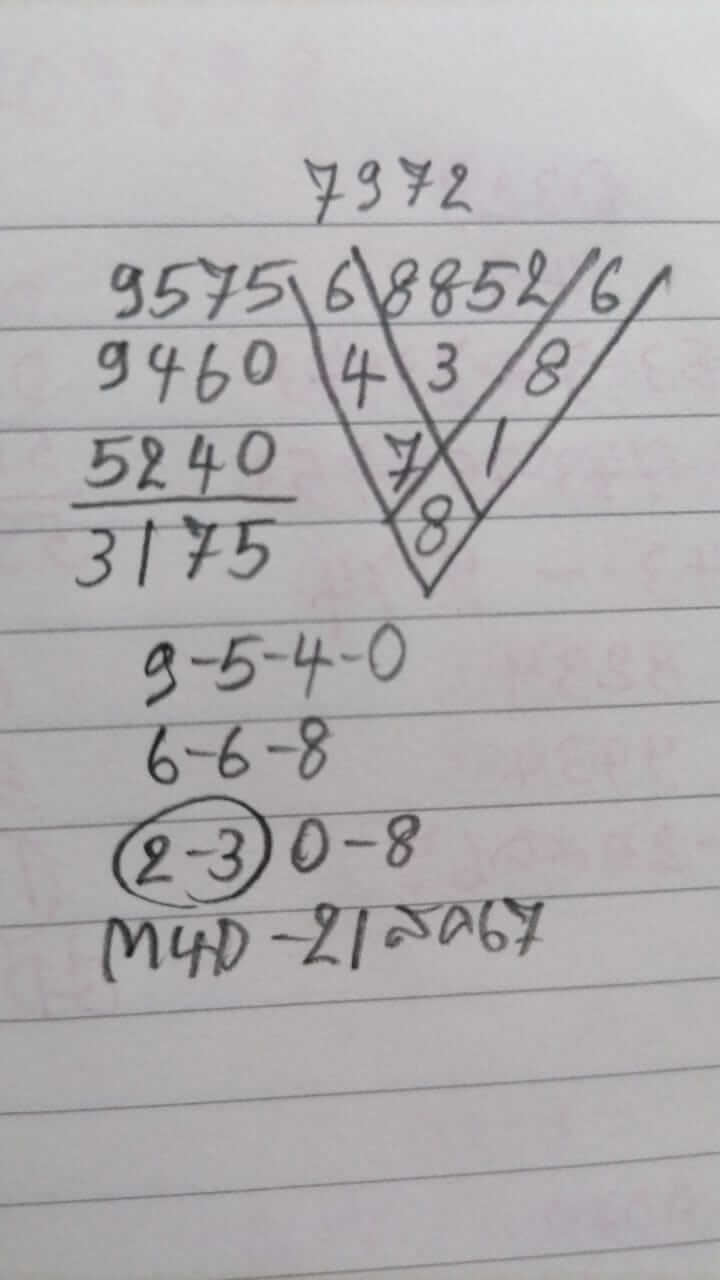 7972
9575 6 8852 6
9460 4 3 8
5240 7 1
3175 8
9-5-4-0
6-6-8
2-3 0-8
M4D -21 สค67